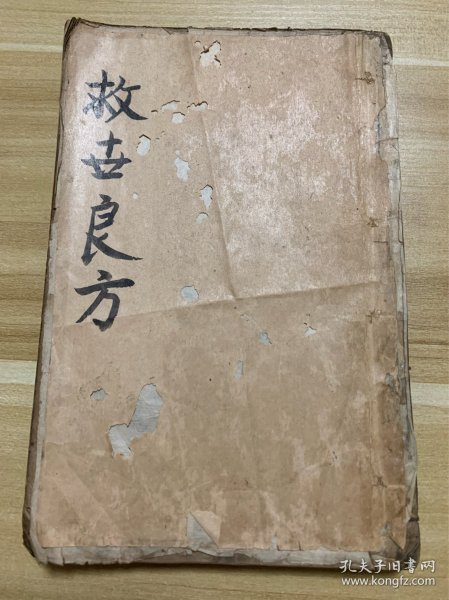 救世良方
孔夫子旧书网
www.kongfz.com